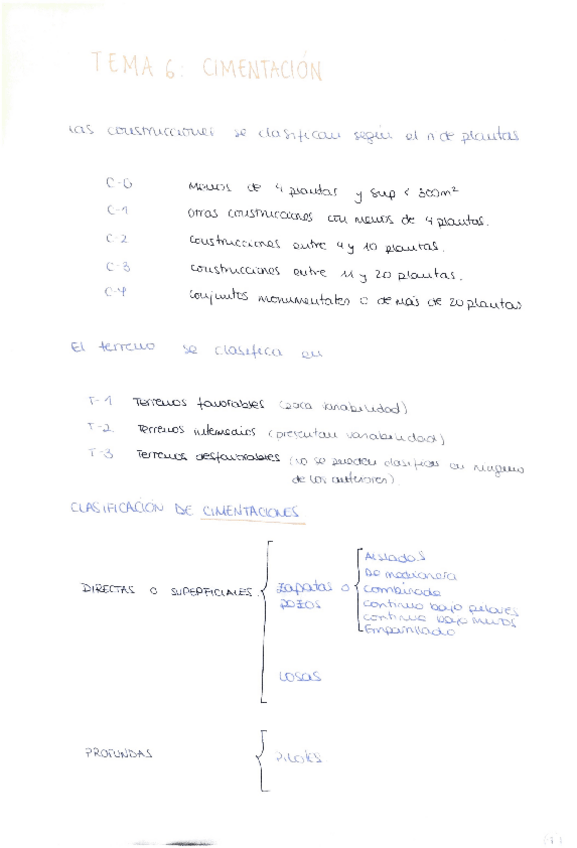 TEMA 6: CIMENTACIÓN
Las construcciones se clasifican según el n de plantas
C-0 Menos de 4 plantas y sup < 300m²
C-1 otras construcciones con menos de 4 plantas.
C-2 construcciones entre 4 y 10 plantas.
C-3 construcciones entre 11 y 20 plantas.
C-4 conjuntos monumentales o de más de 20 plantas
El terreno se clasifica en
T-1 Terrenos favorables (poca variabilidad)
T-2 Terrenos intermedios (presentan variabilidad)
T-3 Terrenos desfavorables (no se pueden clasificar en ninguno
de los anteriores)
CLASIFICACIÓN DE CIMENTACIONES
DIRECTAS O SUPERFICIALES
zapatas o
pozos
Aislados
De medianera
combinada
continua bajo pilares
continua bajo muros
Emparrillado
LOSAS
PROFUNDAS
PILOTES